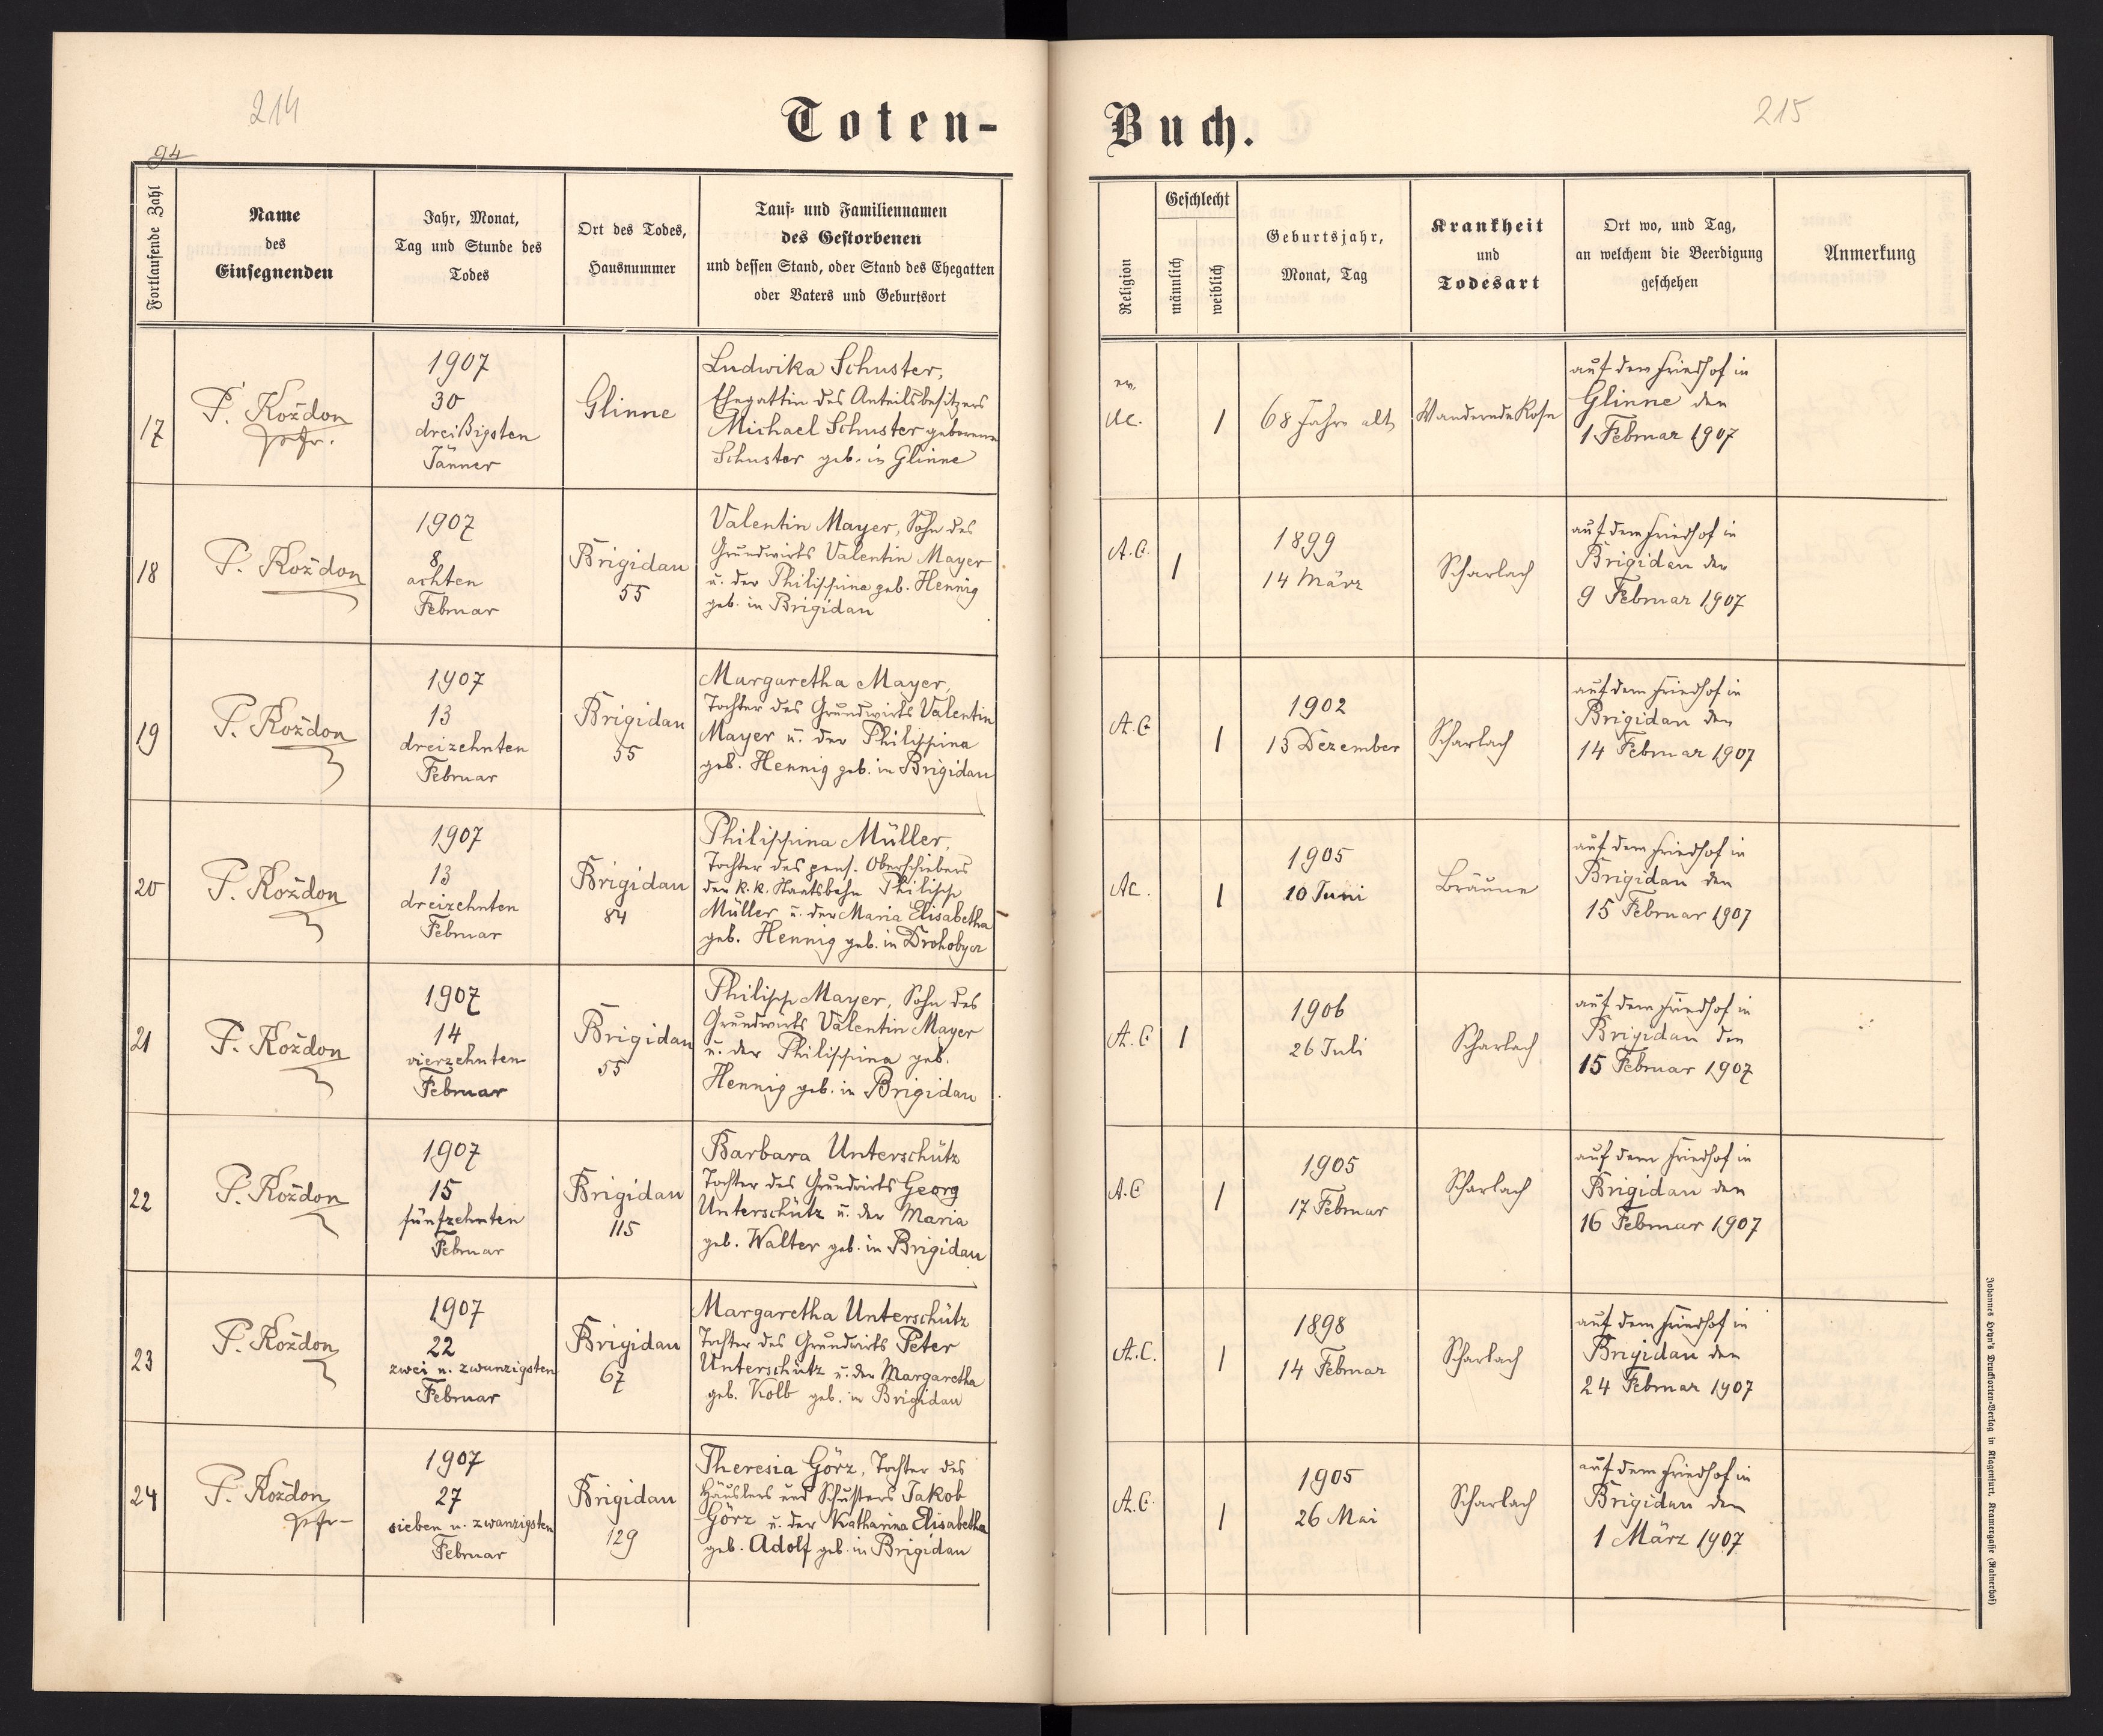 214
Toten-
Buch.
215
94
Fortlaufende Zahl
Name
des
Einsegnenden
Jahr, Monat,
Tag und Stunde des
Todes
Ort des Todes,
Hausnummer
Tauf- und Familiennamen
des Gestorbenen
und dessen Stand, oder Stand des Ehegatten
oder Vaters und Geburtsort
Religion
Geschlecht
männlich
weiblich
Geburtsjahr,
Monat, Tag
Krankheit
und
Todesart
Ort wo, und Tag,
an welchem die Beerdigung
geschehen
Anmerkung
17
P. Koždon
Pfr.
1907
30
dreißigsten
Jänner
Glinne
Ludwika Schuster,
Ehegattin des Anteilsbesitzers
Michael Schuster geborene
Schuster geb. in Glinne
ev.
AC.
1
68 Jahre alt
Wandernde Rose
auf dem Friedhof in
Glinne den
1 Februar 1907
18
P. Koždon
1907
8
achten
Februar
Brigidau
55
Valentin Mayer, Sohn des
Grundwirts Valentin Mayer
u. der Philippina geb. Hennig
geb. in Brigidau
A.C.
1
1899
14 März
Scharlach
auf dem Friedhof in
Brigidau den
9 Februar 1907
19
P. Koždon
1907
13
dreizehnten
Februar
Brigidau
55
Margaretha Mayer,
Tochter des Grundwirts Valentin
Mayer u. der Philippina
geb. Hennig geb. in Brigidau
A.C
1
1902
15 Dezember
Scharlach
auf dem Friedhof in
Brigidau den
14 Februar 1907
20
P. Koždon
1907
13
dreizehnten
Februar
Brigidau
84
Philippina Müller,
Tochter des pens. Oberschiebers
der k.k. Staatsbahn Philipp
Müller u. der Maria Elisabetha
geb. Hennig geb. in Drohobycz
AC.
1
1905
10 Juni
Bräune
auf dem Friedhof in
Brigidau den
15 Februar 1907
21
P. Koždon
1907
14
vierzehnten
Februar
Brigidau
55
Philipp Mayer, Sohn des
Grundwirts Valentin Mayer
u. der Philippina geb.
Hennig geb. in Brigidau
A.C
1
1906
26 Juli
Scharlach
auf dem Friedhof in
Brigidau den
15 Februar 1907
22
P. Koždon
1907
15
fünfzehnten
Februar
Brigidau
115
Barbara Unterschütz
Tochter des Grundwirts Georg
Unterschütz u. der Maria
geb. Walter geb. in Brigidau
A.C
1
1905
17 Februar
Scharlach
auf dem Friedhof in
Brigidau den
16 Februar 1907
23
P. Koždon
1907
22
zwei u. zwanzigsten
Februar
Brigidau
67
Margaretha Unterschütz
Tochter des Grundwirts Peter
Unterschütz u. der Margaretha
geb. Kolb geb. in Brigidau
A.C.
1
1898
14 Februar
Scharlach
auf dem Friedhof in
Brigidau den
24 Februar 1907
24
P. Koždon
Pfr
1907
27
sieben u. zwanzigsten
Februar
Brigidau
129
Theresia Görz, Tochter des
Häuslers und Schusters Jakob
Görz u. der Katharina Elisabetha
geb. Adolf geb. in Brigidau
A.C.
1
1905
26 Mai
Scharlach
auf dem Friedhof in
Brigidau den
1 März 1907
Johannes Heyn's Drucksorten-Verlag in Klagenfurt, Kramergasse (Rainerhof)